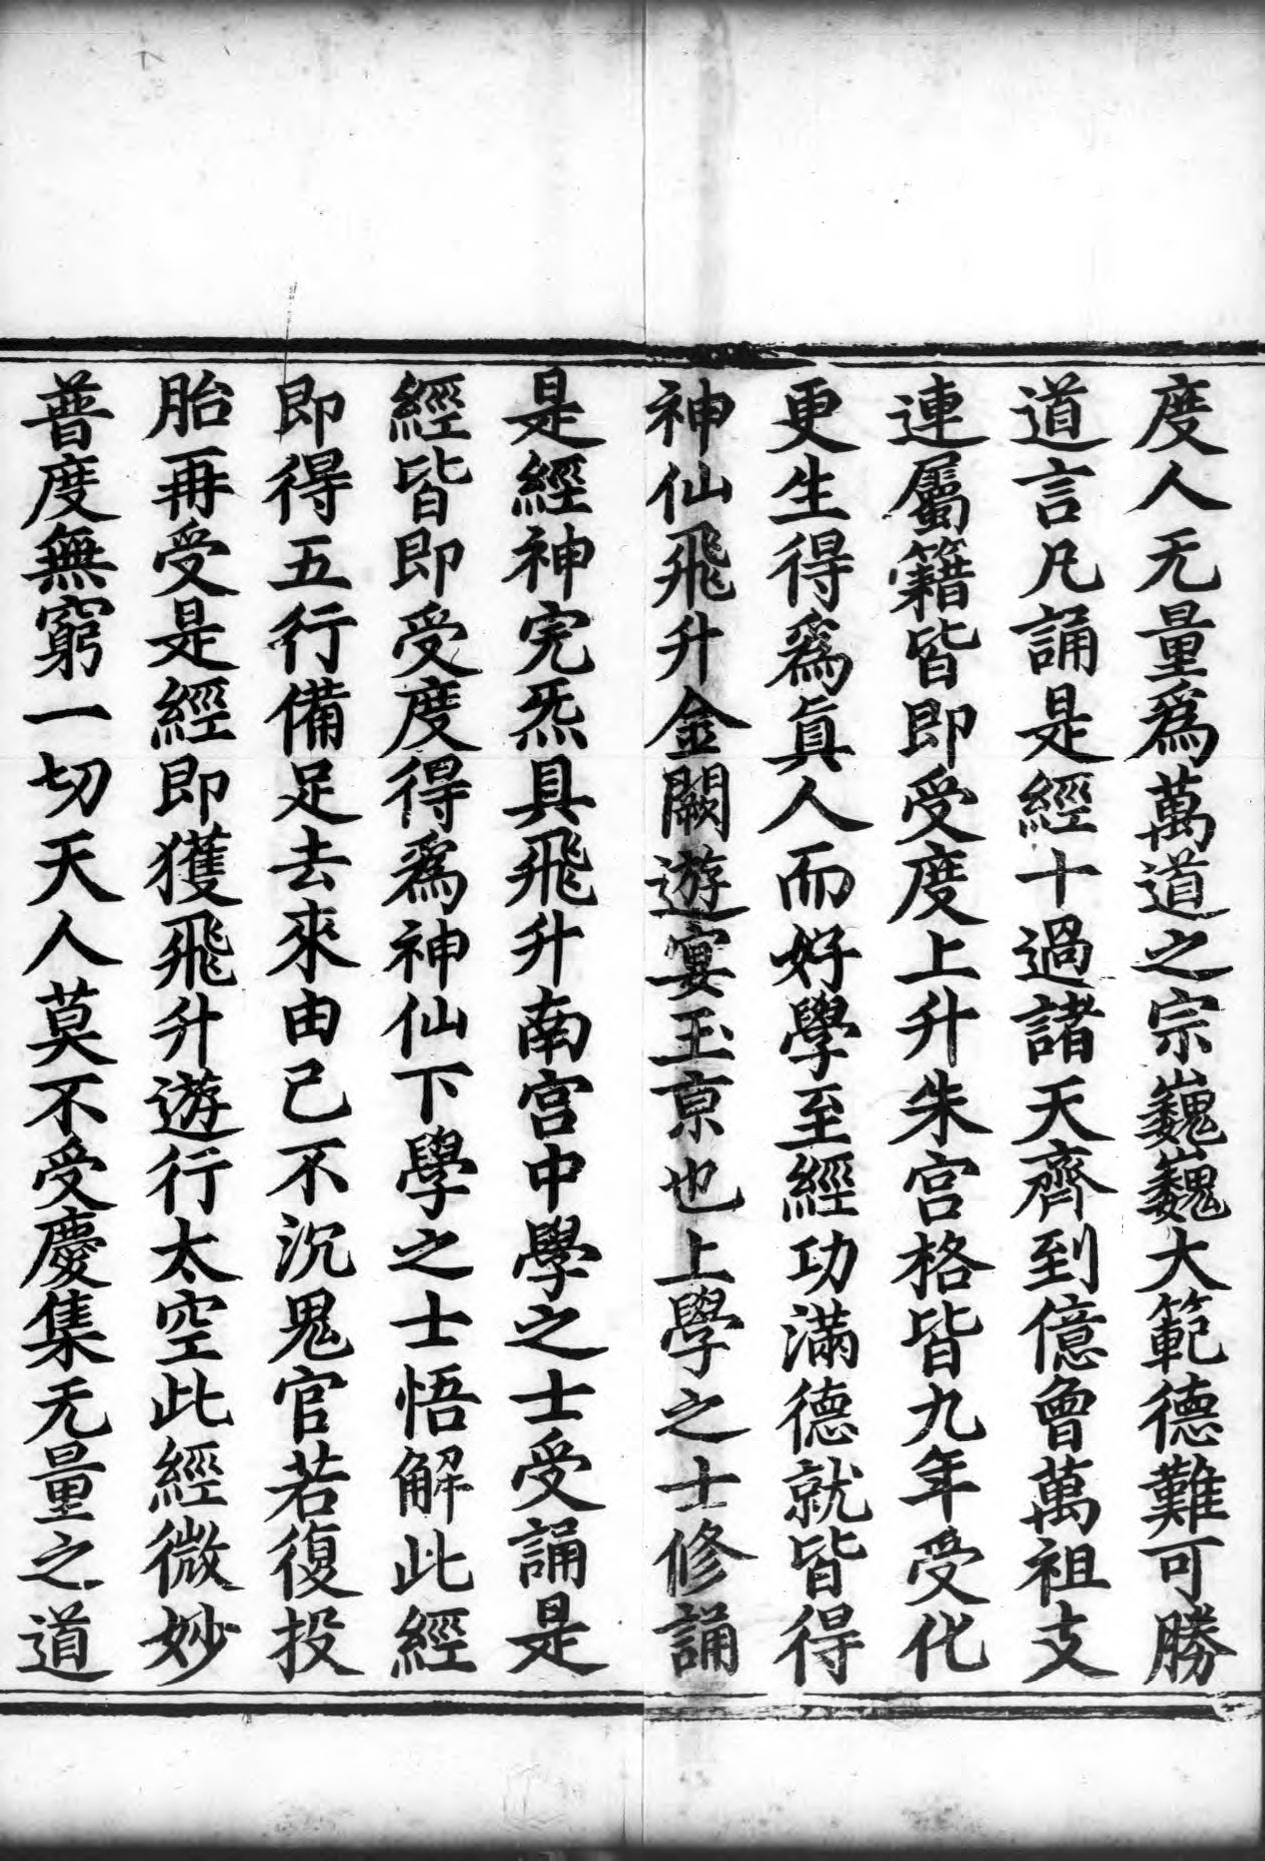 度人无量爲萬道之宗巍巍大範德難可勝
道言凡誦是經十過諸天齊到億曾萬祖支
連屬籍皆即受度上升朱宫格皆九年受化
更生得爲真人而好學至經功滿德就皆得
神仙飛升金闕遊宴玉京也上學之士修誦
是經神完炁具飛升南宫中學之士受誦是
經皆即受度得爲神仙下學之士悟解此經
即得五行備足去來由己不沉鬼官若復投
胎再受是經即獲飛升遊行太空此經微妙
普度無窮一切天人莫不受慶集无量之道